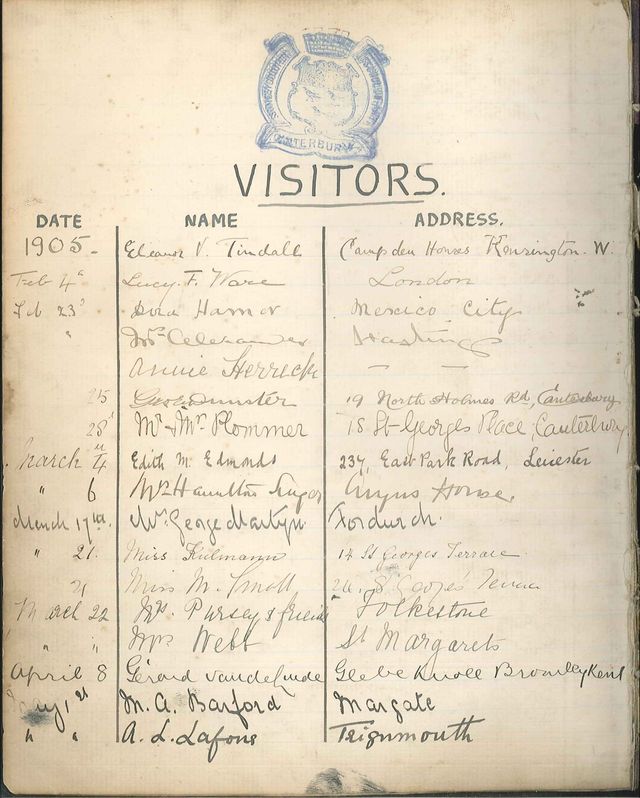 CANTERBURY
VISITORS.
DATE NAME ADDRESS.
1905- Eleanor V. Tindall Campden Houses Kensington. W.
Feb 4 Lucy. F. Ware London
Feb 23 Dora Hamor Mexico City
" Mrs Alexander Hastings
Annie Herrick — —
25 19 North Holmes Rd, Canterbury
28 Mr & Mrs Plommer 18 St Georges Place, Canterbury
March 4 Edith M. Edmonds 237, East Park Road, Leicester
" 6 Mrs Hamilton Angus House.
March 17th. Mrs. George Martyn Fordwich.
" 21. Miss Kilmann 14 St Georges Terrace
21 Miss M. Small 26. St Georges Terrace
March 22 Mrs. Pursey & friends Folkestone
" " Mrs Webb St Margarets
April 8 Gérard Glebe Knoll Bromley Kent
May 1st M. A. Barford Margate
" " A. L. Lafone Teignmouth